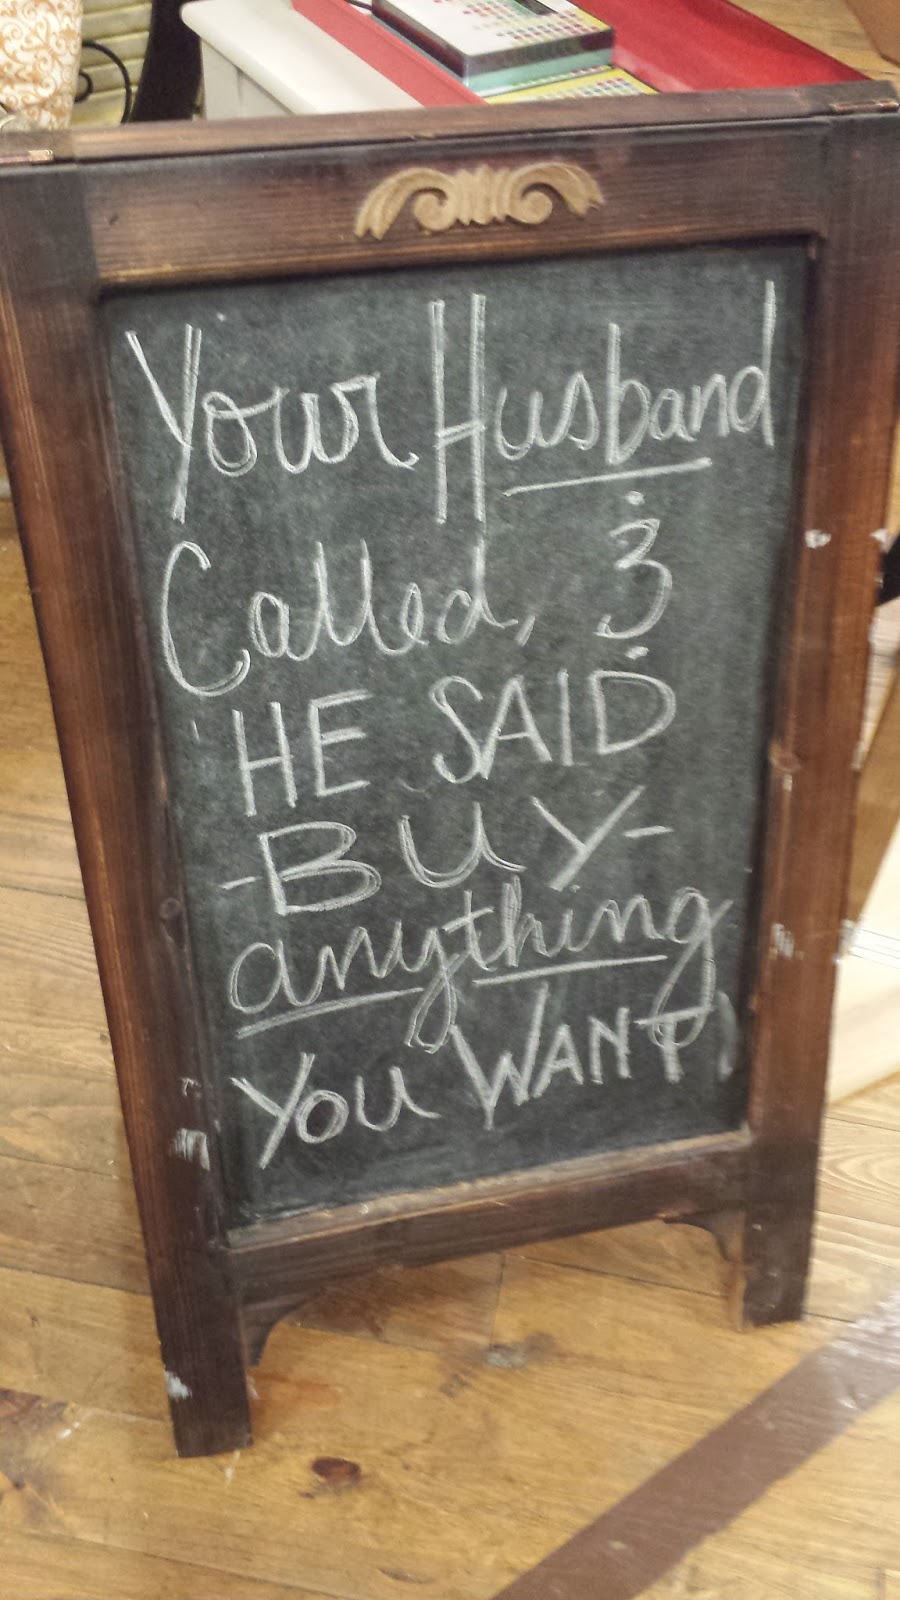 Your Husband
Called, &
HE SAID
-BUY-
anything
You WANT!